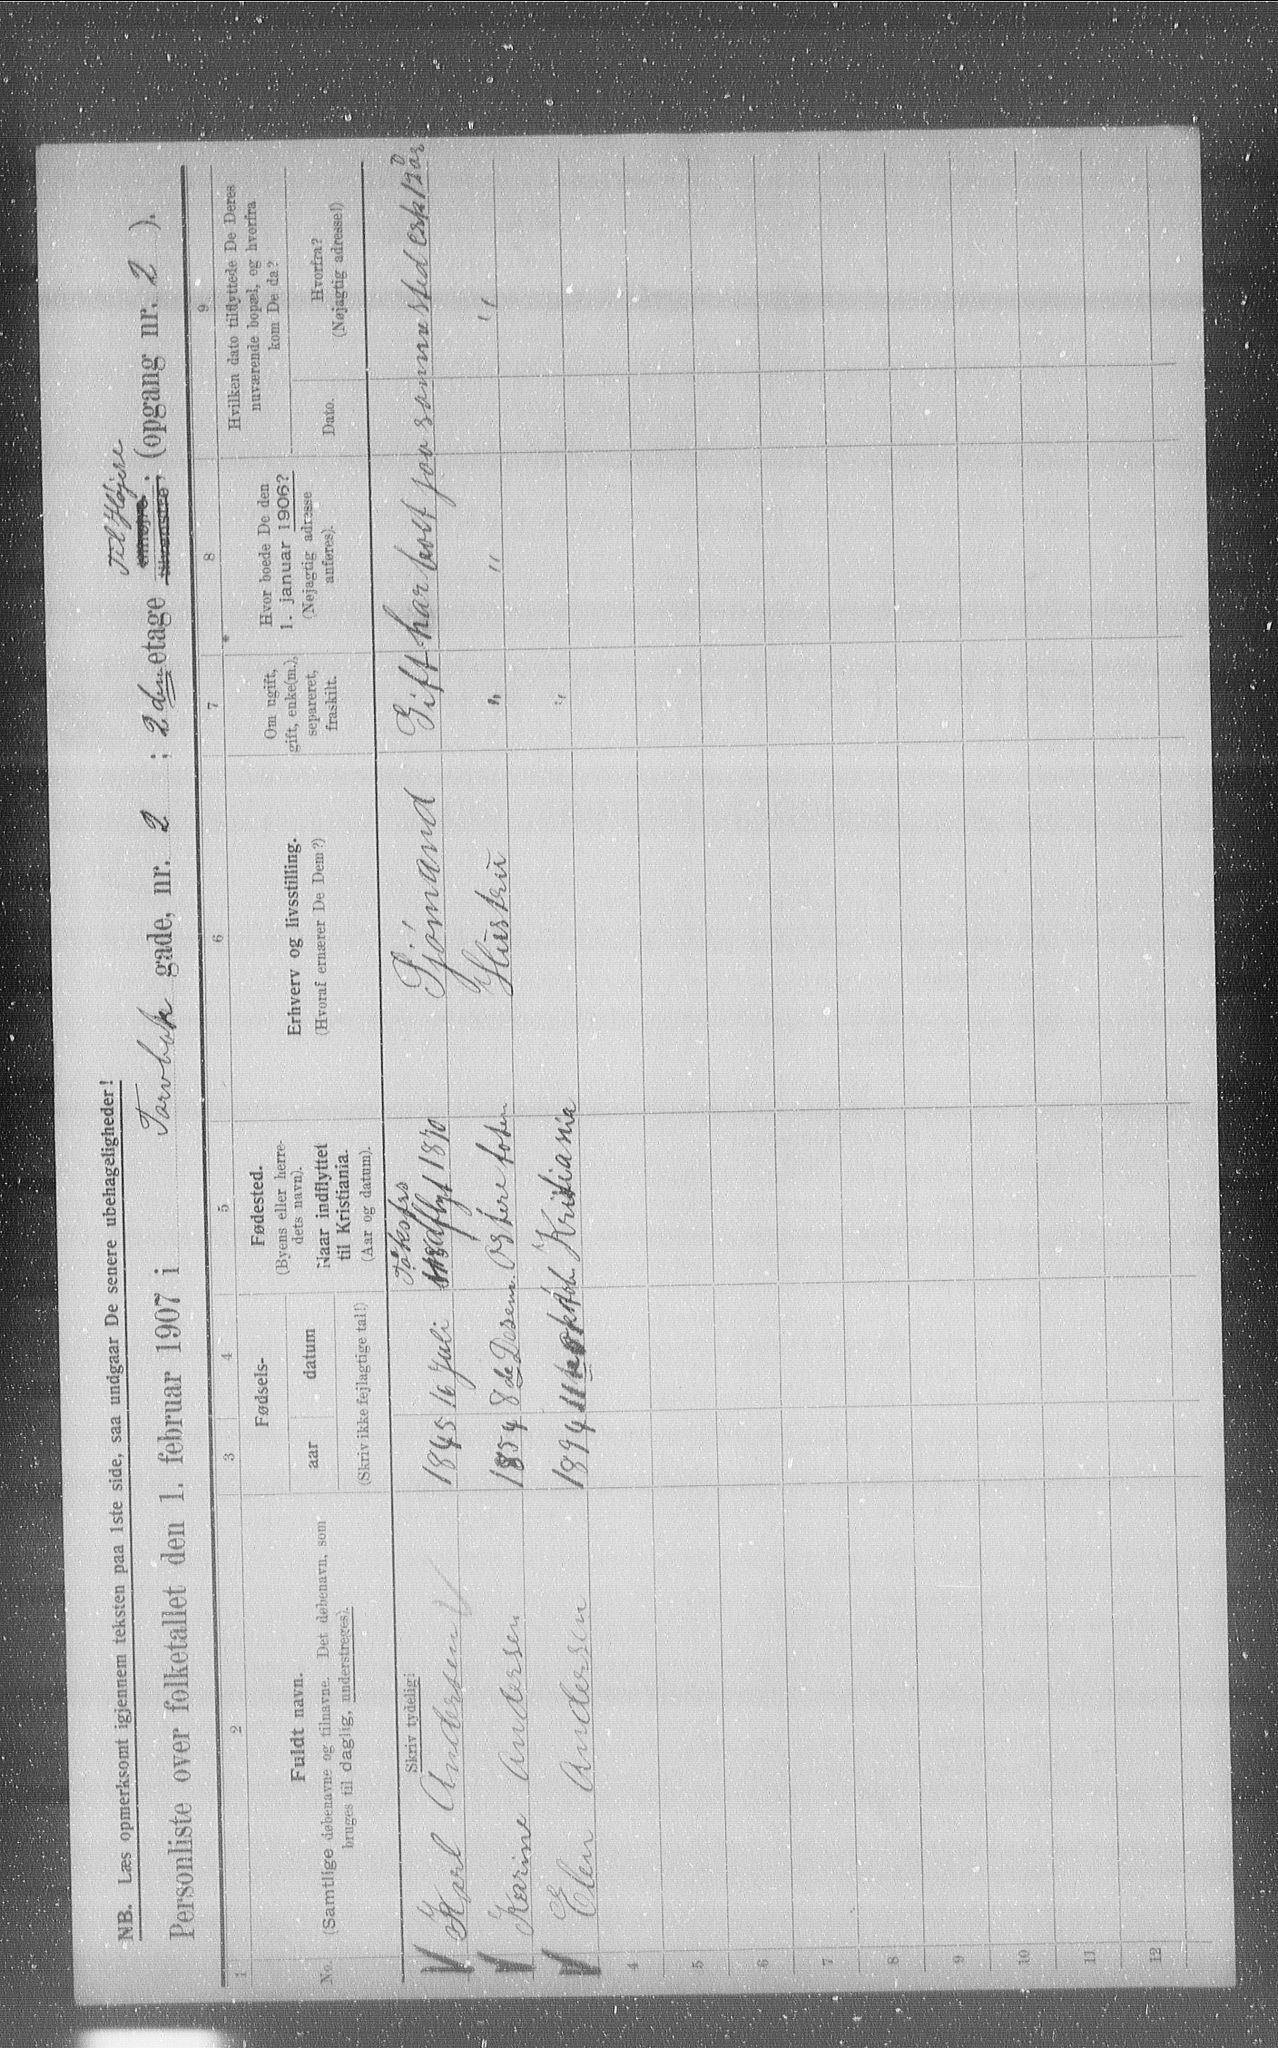 NB. Læs opmerksomt igjennem teksten paa 1ste side, saa undgaar De senere ubehageligheder!
Personliste over folketallet den 1. februar 1907 i Torvbak gade, nr. 2 ; 2 den etage tilvenstre, (opgang nr. 2 ).
Til Højere
1 2 3 4 5 6 7 8 9
No.
Fuldt navn.
(Samtlige døbenavne og tilnavne. Det døbenavn, som
bruges til daglig, understreges).
Fødsels-
aar datum
(Skriv ikke fejlagtige tal!)
Fødested.
(Byens eller herre-
dets navn).
Naar indflyttet
til Kristiania.
(Aar og datum).
Erhverv og livsstilling.
(Hvoraf ernærer De Dem?)
Om ugift,
gift, enke(m.),
separeret,
fraskilt.
Hvor boede De den
1. januar 1906?
(Nøjagtig adresse
anføres).
Hvilken dato tilflyttede De Deres
nuværende bopæl, og hvorfra
kom De da?
Dato.
Hvorfra?
(Nøjagtig adresse!)
Skriv tydelig!
Karl Andersen 1845 16 Juli indflyt 1870 Sjömand Gift har bott paa samme sted
Karine Andersen 1854 8de Desem. Østere toten Hustru " " "
Elen Andersen 1894 11te oktob. Kristiania "
4
5
6
7
8
9
10
11
12